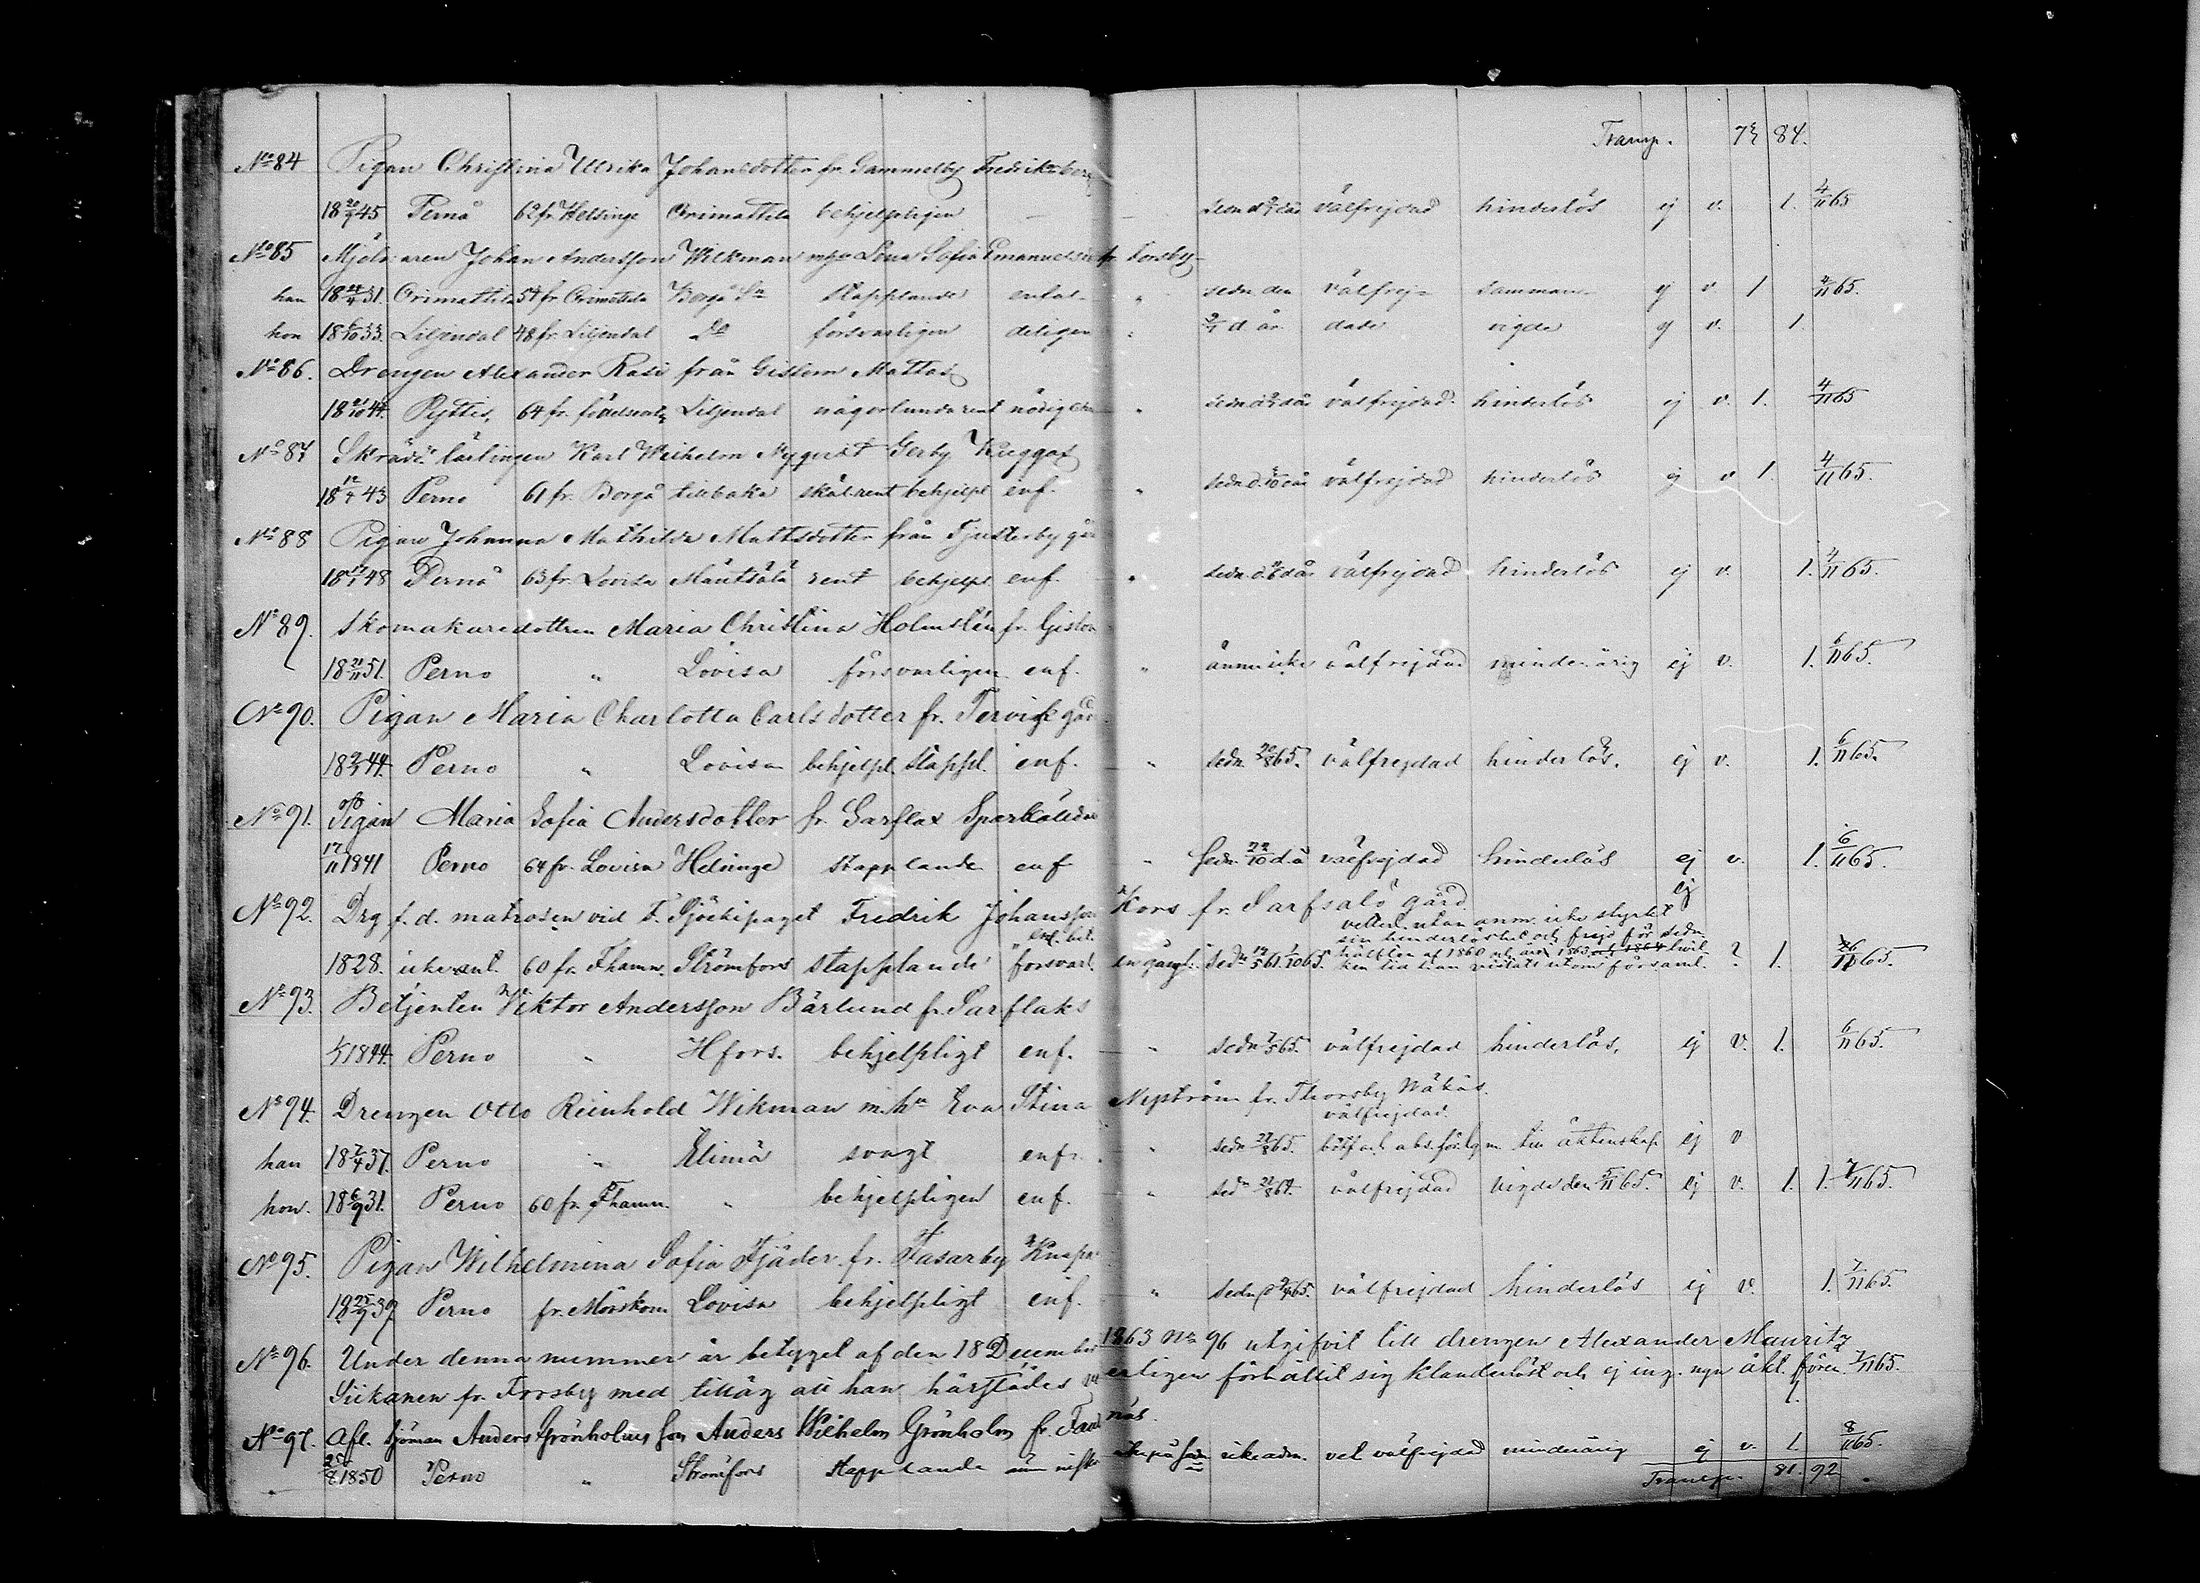 Transp. 84.
No 84 Pigan Christina Ulrika Johansdotter fr. Gammelby Fredriksberg
18 20/9 45 Pernå 62 fr. Helsinge Orimattila behjelpligen — välfrejdad hinderlös ej v. 1. 4/11 65
No 85 Mjölnaren Johan Andersson Wilkman m hu Lena Sofia Emanuelsdr fr. Forsby
han 31. Orimattila 54 fr. Orimattila Borgå Sn stapplande enfal- " sedn den välfrej- samman- ej v 1 4/11 65.
hon 18 6/10 33. Liljendal 48 fr. Liljendal Do försvarligen deligen " d. år. dade vigde ej v. 1.
No 86. Drengen Alexander Rasi från Gislom Mattas
18 21/10 44. Pyttis, 64 fr. Liljendal någorlunda rent nödig " välfrejdad hinderlös ej v. 1. 4/11 65
No 87 Skräd. lärlingen Karl Wilhelm Nyqvist Gerby Kuggas
18 43 Perno 61 fr. Borgå tillbaka behjelpl enf. " välfrejdad hinderlös ej v 1. 4/11 65.
No 88 Pigan Johanna Mathilda Mattsdotter från Tjusterby går
18 48 Pernå 63 fr. Lovisa Mäntsälä rent behjelpl. enf. " välfrejdad hinderlös ej v. 1. 4/11 65.
No 89. Skomakaredottren Maria Christina Holmsten fr. Gislom
18 21/11 51. Perno " Lovisa försvarligen enf. " ännu icke välfrejdad minderårig ej v. 1. 6/11 65.
No 90. Pigan Maria Charlotta Carlsdotter fr. Tervik gård
18 44. Perno " Lovisa behjelpl. stappl. enf. " sedn. 20/8 65. välfrejdad hinderlös. ej v. 1. 6/11 65.
No 91. Pigan Maria Sofia Andersdotter fr. Sarflax
17/11 1841 Perno 64 fr. Lovisa Helsinge stapplande enf " sedn. 22/10 d.å välfrejdad hinderlös ej v. 1. 6/11 65.
No 92. Drg f. d. matrosen vid F. Sjöekipaget Fredrik Johansson Kors fr. Sarfsalö gård ej
vetterl. utan anm. icke styrkt
sin hinderlöshet och frejd för sedn.
1828. icke ant. 60 fr. Fhamn. Strömfors stapplande försvarl. en gång hälften af 1860 1863 och 1864 hvil- ? 1. 26/11 65.
ken tid han vistats utom församl.
No 93. Betjenten Viktor Andersson Bärlund fr. Sarflaks
1844. Perno " Hfors. behjelpligt enf. " sedn 7/5 65. välfrejdad hinderlös, ej v. 1. 6/11 65.
No 94. Drengen Otto Reinhold Wikman m. hu Eva Stina Nyström fr. Thorsby Näkäs.
välfrejdad.
han 18 7/4 37. Perno " Elimä svagt enf. " sedn 27/8 65. till äktenskap ej v
hon. 18 6/9 31. Perno 60 fr. Fhamn. " behjelpligen enf. " välfrejdad vigde den 5/11 65. ej v. 1. 1. 7/11 65.
No 95. Pigan Wilhelmina Sofia Fjäder fr. Fasarby Knapas
18 25/9 39 Perno fr. Mörskom Lovisa behjelpligt enf. " välfrejdad hinderlös ej v. 1. 7/11 65.
No 96. Under denna nummer är betyget af den 18 December 1863 No 96 utgifvit till drengen Alexander Mauritz
Siikanen fr. Forsby med tilläg att han härstädes förhållit sig klanderlöst och ej ing. ngn äkt. fören. 7/11 65.
No 97. Afl. Sjöman Anders Grönholms son Anders Wilhelm Grönholm fr.
1850 Perno " Strömfors stapplande icke adm. vel välfrejdad minderårig ej v. 1. 8/11 65.
Transp. 81. 92